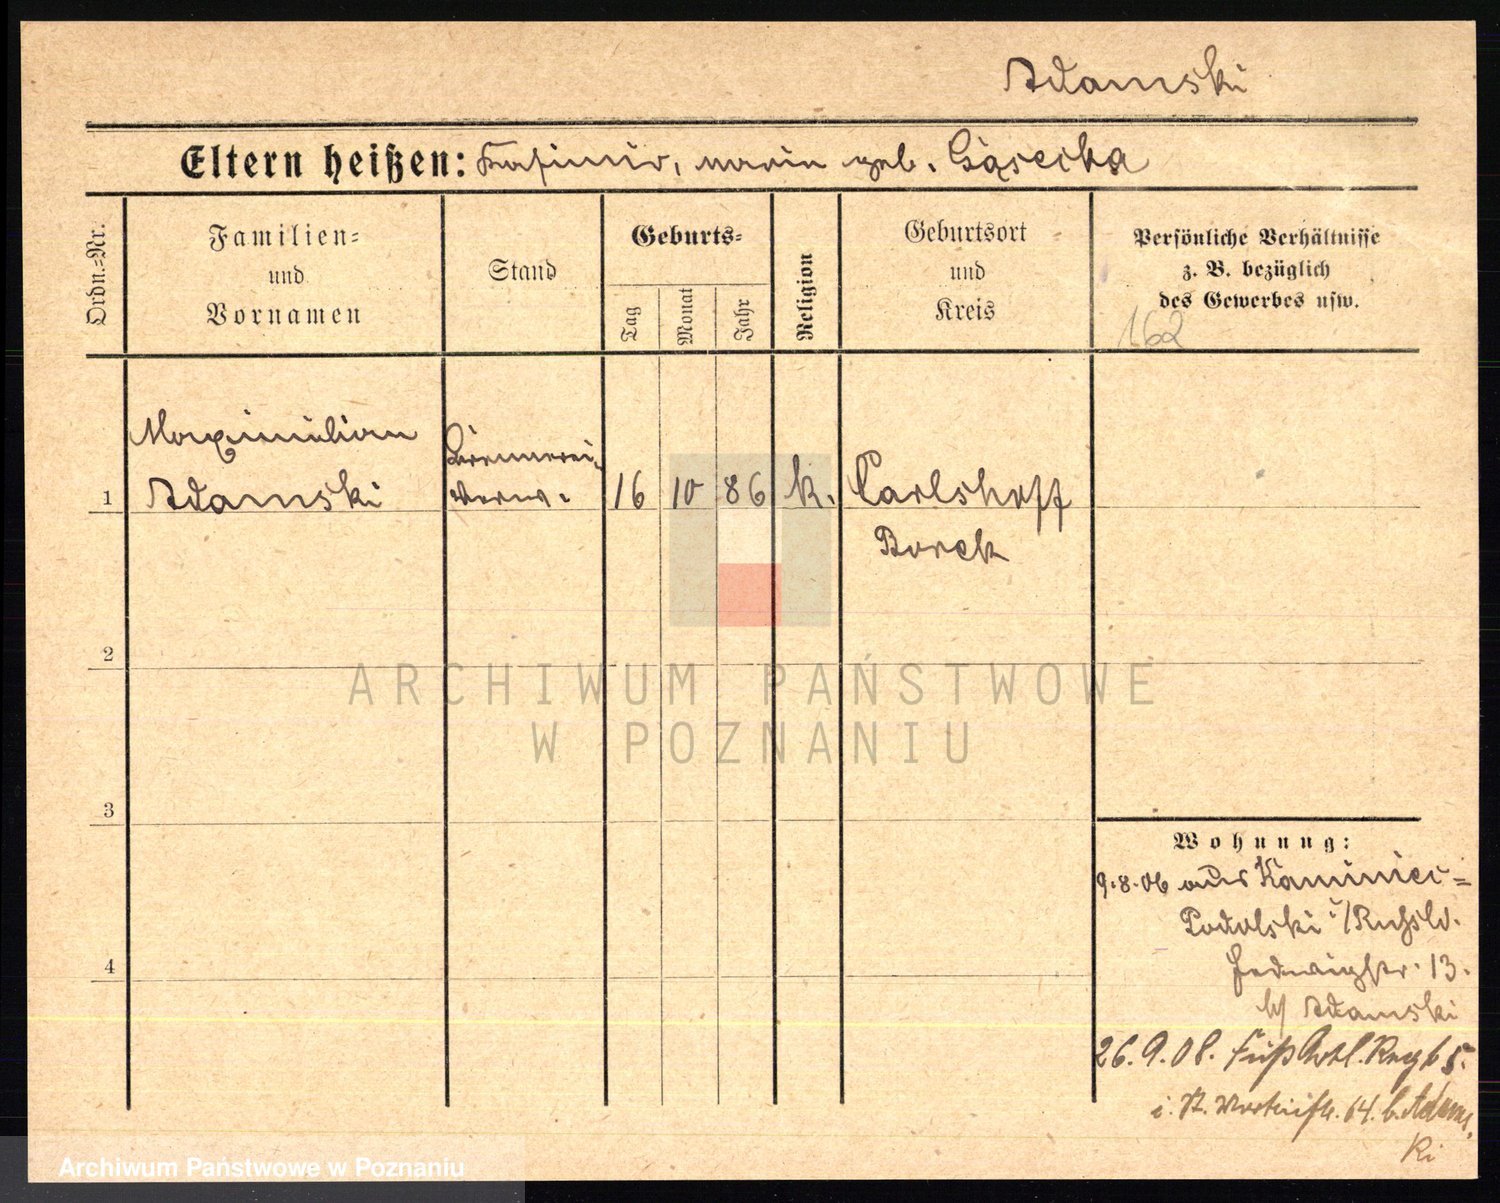 Adamski
Eltern heißen: Kasimir, Marie geb. Gąsecka
Ordn.-Nr.
Familien-
und
Vornamen
Stand
Geburts-
Tag
Monat
Jahr
Religion
Geburtsort
und
Kreis
Persönliche Verhältnisse
z. B. bezüglich
des Gewerbes usw.
162
Maximilian
Brennerei-
1 Adamski verw. 16 10 86 k. Carlshoff
Borek
2
ARCHIWUM PAŃSTWOWE
W POZNANIU
3
Wohnung:
9.8.06 aus Kaminiec-
Podolski i/Rußld.
Hedwigstr. 13.
b/ Adamski
4
26.9.08. Fuß Artl. Regt 5.
i. 64. b. Adams
ki
Archiwum Państwowe w Poznaniu